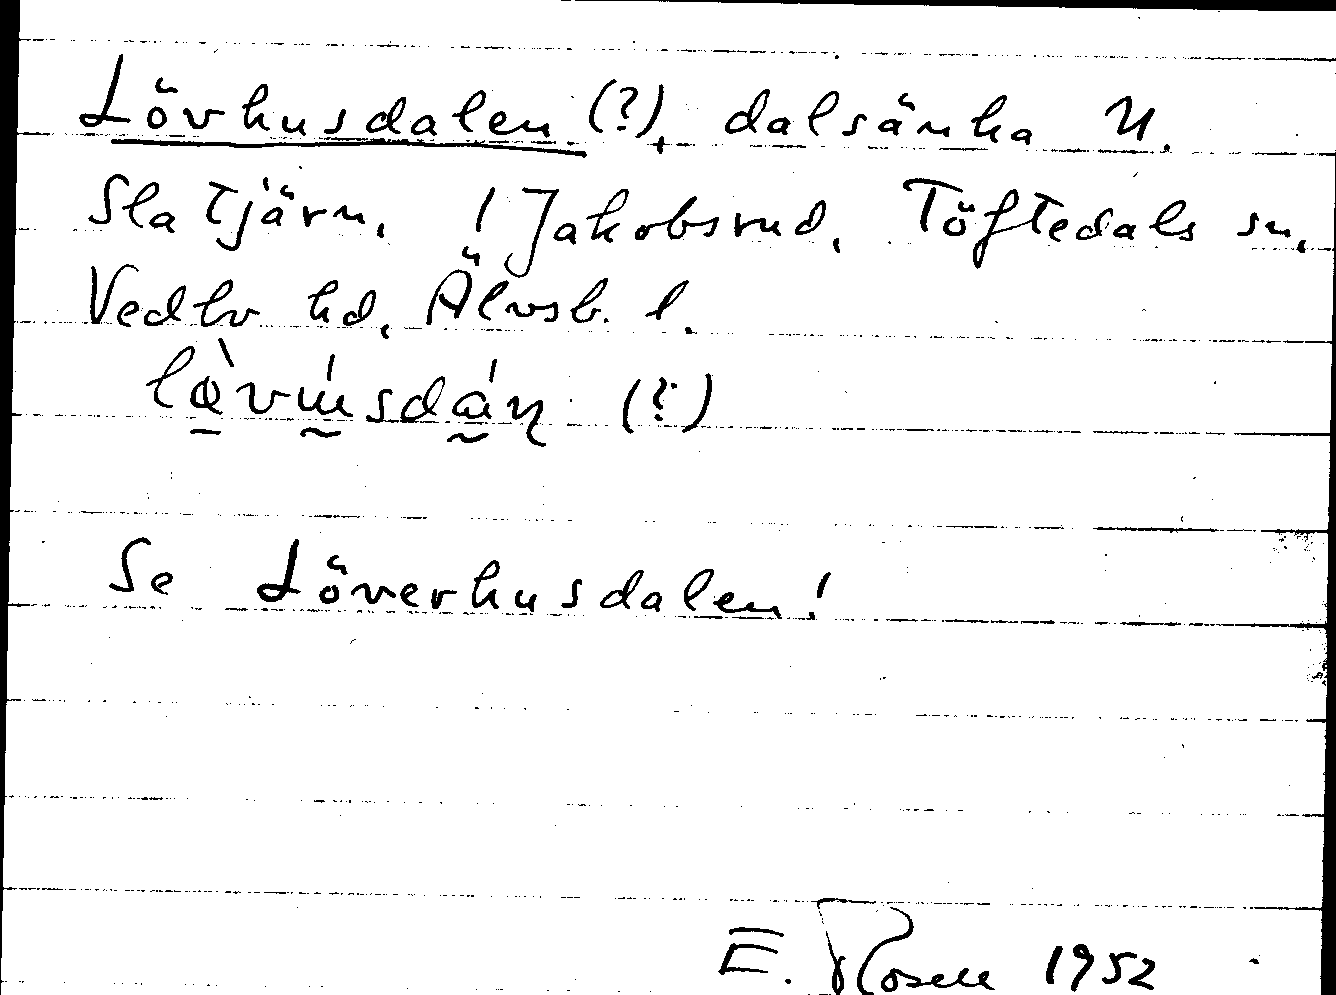 Lövhusdalen (?), dalsänka N.
Sla tjärn, ! Jakobsrud, Töftedals sn,
Vedbo hd, Älvsb. l.
Se Löverhusdalen!
E. Rosell 1952